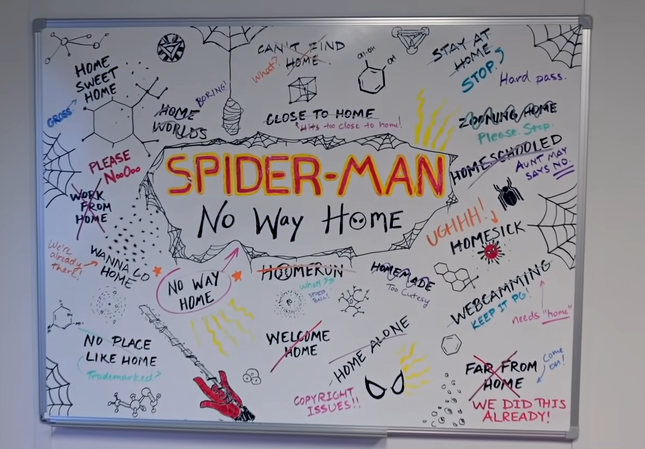 HOME
SWEET
HOME
GROSS
HOME
WORLDS
BORING!
CAN'T FIND
HOME
What?
CLOSE TO HOME
Hits too close to home!
STAY AT
HOME
STOP.
Hard pass.
ZOOMING HOME
Please. Stop.
HOMESCHOOLED
AUNT MAY
SAYS NO.
PLEASE
NOOOO
WORK
FROM
HOME
SPIDER-MAN
No Way Home
UGHHH!
HOMESICK
We're
already
there!
WANNA GO
HOME
NO WAY
HOME
HOMERUN
HOMEMADE
Too cutesy
WEBCAMMING
KEEP IT PG!
needs "home"
NO PLACE
LIKE HOME
Trademarked?
WELCOME
HOME
HOME ALONE
COPYRIGHT
ISSUES!!
FAR FROM
HOME
Come
on!
WE DID THIS
ALREADY!